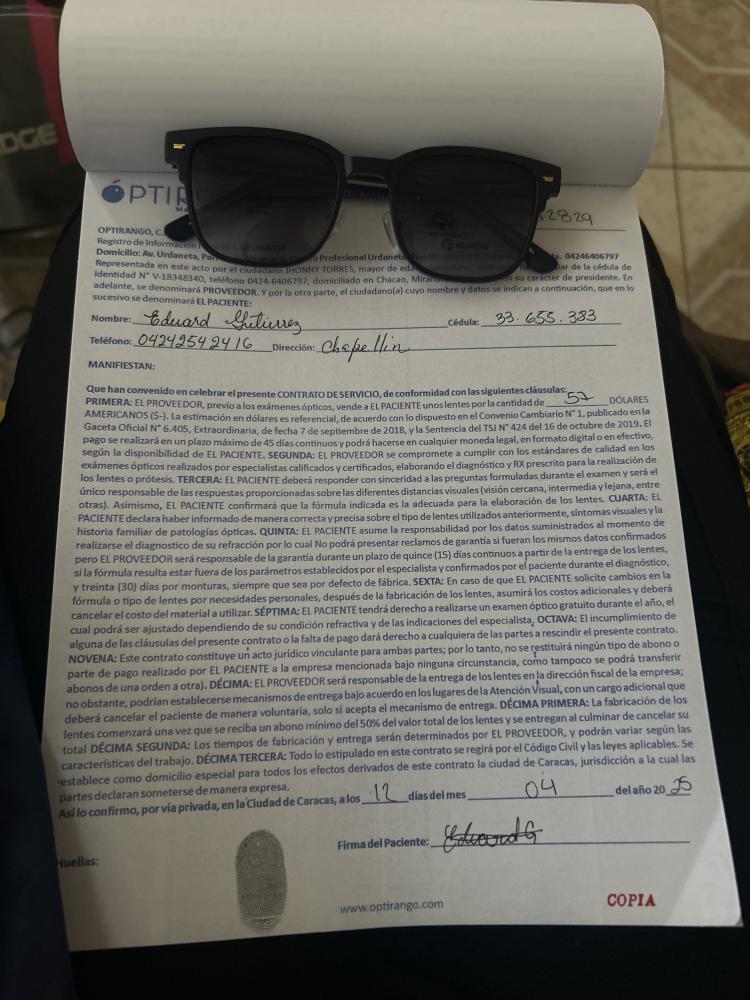 DGE
ÓPTIR
2829
OPTIRANGO, C.
Registro de Información
Domicilio: Av. Urdaneta, Profesional Urdaneta, 04246406797
Representada en este acto por el ciudadano JHONNY TORRES, mayor de edad, de la cédula de
identidad N° V-18348340, teléfono 0424-6406797, domiciliado en Chacao, en su carácter de presidente. En
adelante, se denominará PROVEEDOR. Y por la otra parte, el ciudadano(a) cuyo nombre y datos se indican a continuación, que en lo
sucesivo se denominará EL PACIENTE:
Nombre: Eduard Gutierrez Cédula: 33.655.383
Teléfono: 04242542416 Dirección: Chapellin
MANIFIESTAN:
Que han convenido en celebrar el presente CONTRATO DE SERVICIO, de conformidad con las siguientes cláusulas:
PRIMERA: EL PROVEEDOR, previo a los exámenes ópticos, vende a EL PACIENTE unos lentes por la cantidad de 57 DÓLARES
AMERICANOS ($-). La estimación en dólares es referencial, de acuerdo con lo dispuesto en el Convenio Cambiario N° 1, publicado en la
Gaceta Oficial N° 6.405, Extraordinaria, de fecha 7 de septiembre de 2018, y la Sentencia del TSJ N° 424 del 16 de octubre de 2019. El
pago se realizará en un plazo máximo de 45 días continuos y podrá hacerse en cualquier moneda legal, en formato digital o en efectivo,
según la disponibilidad de EL PACIENTE. SEGUNDA: EL PROVEEDOR se compromete a cumplir con los estándares de calidad en los
exámenes ópticos realizados por especialistas calificados y certificados, elaborando el diagnóstico y RX prescrito para la realización de
los lentes o prótesis. TERCERA: EL PACIENTE deberá responder con sinceridad a las preguntas formuladas durante el examen y será el
único responsable de las respuestas proporcionadas sobre las diferentes distancias visuales (visión cercana, intermedia y lejana, entre
otras). Asimismo, EL PACIENTE confirmará que la fórmula indicada es la adecuada para la elaboración de los lentes. CUARTA: EL
PACIENTE declara haber informado de manera correcta y precisa sobre el tipo de lentes utilizados anteriormente, síntomas visuales y la
historia familiar de patologías ópticas. QUINTA: EL PACIENTE asume la responsabilidad por los datos suministrados al momento de
realizarse el diagnostico de su refracción por lo cual No podrá presentar reclamos de garantía si fueran los mismos datos confirmados
pero EL PROVEEDOR será responsable de la garantía durante un plazo de quince (15) días continuos a partir de la entrega de los lentes,
si la fórmula resulta estar fuera de los parámetros establecidos por el especialista y confirmados por el paciente durante el diagnóstico,
y treinta (30) días por monturas, siempre que sea por defecto de fábrica. SEXTA: En caso de que EL PACIENTE solicite cambios en la
fórmula o tipo de lentes por necesidades personales, después de la fabricación de los lentes, asumirá los costos adicionales y deberá
cancelar el costo del material a utilizar. SÉPTIMA: EL PACIENTE tendrá derecho a realizarse un examen óptico gratuito durante el año, el
cual podrá ser ajustado dependiendo de su condición refractiva y de las indicaciones del especialista. OCTAVA: El incumplimiento de
alguna de las cláusulas del presente contrato o la falta de pago dará derecho a cualquiera de las partes a rescindir el presente contrato.
NOVENA: Este contrato constituye un acto jurídico vinculante para ambas partes; por lo tanto, no se restituirá ningún tipo de abono o
parte de pago realizado por EL PACIENTE a la empresa mencionada bajo ninguna circunstancia, como tampoco se podrá transferir
abonos de una orden a otra). DÉCIMA: EL PROVEEDOR será responsable de la entrega de los lentes en la dirección fiscal de la empresa;
no obstante, podrían establecerse mecanismos de entrega bajo acuerdo en los lugares de la Atención Visual, con un cargo adicional que
deberá cancelar el paciente de manera voluntaria, solo si acepta el mecanismo de entrega. DÉCIMA PRIMERA: La fabricación de los
lentes comenzará una vez que se reciba un abono mínimo del 50% del valor total de los lentes y se entregan al culminar de cancelar su
total DÉCIMA SEGUNDA: Los tiempos de fabricación y entrega serán determinados por EL PROVEEDOR, y podrán variar según las
características del trabajo. DÉCIMA TERCERA: Todo lo estipulado en este contrato se regirá por el Código Civil y las leyes aplicables. Se
establece como domicilio especial para todos los efectos derivados de este contrato la ciudad de Caracas, jurisdicción a la cual las
partes declaran someterse de manera expresa.
Así lo confirmo, por vía privada, en la Ciudad de Caracas, a los 12 días del mes 04 del año 2025
Firma del Paciente: Eduard G
Huellas:
www.optirango.com
COPIA